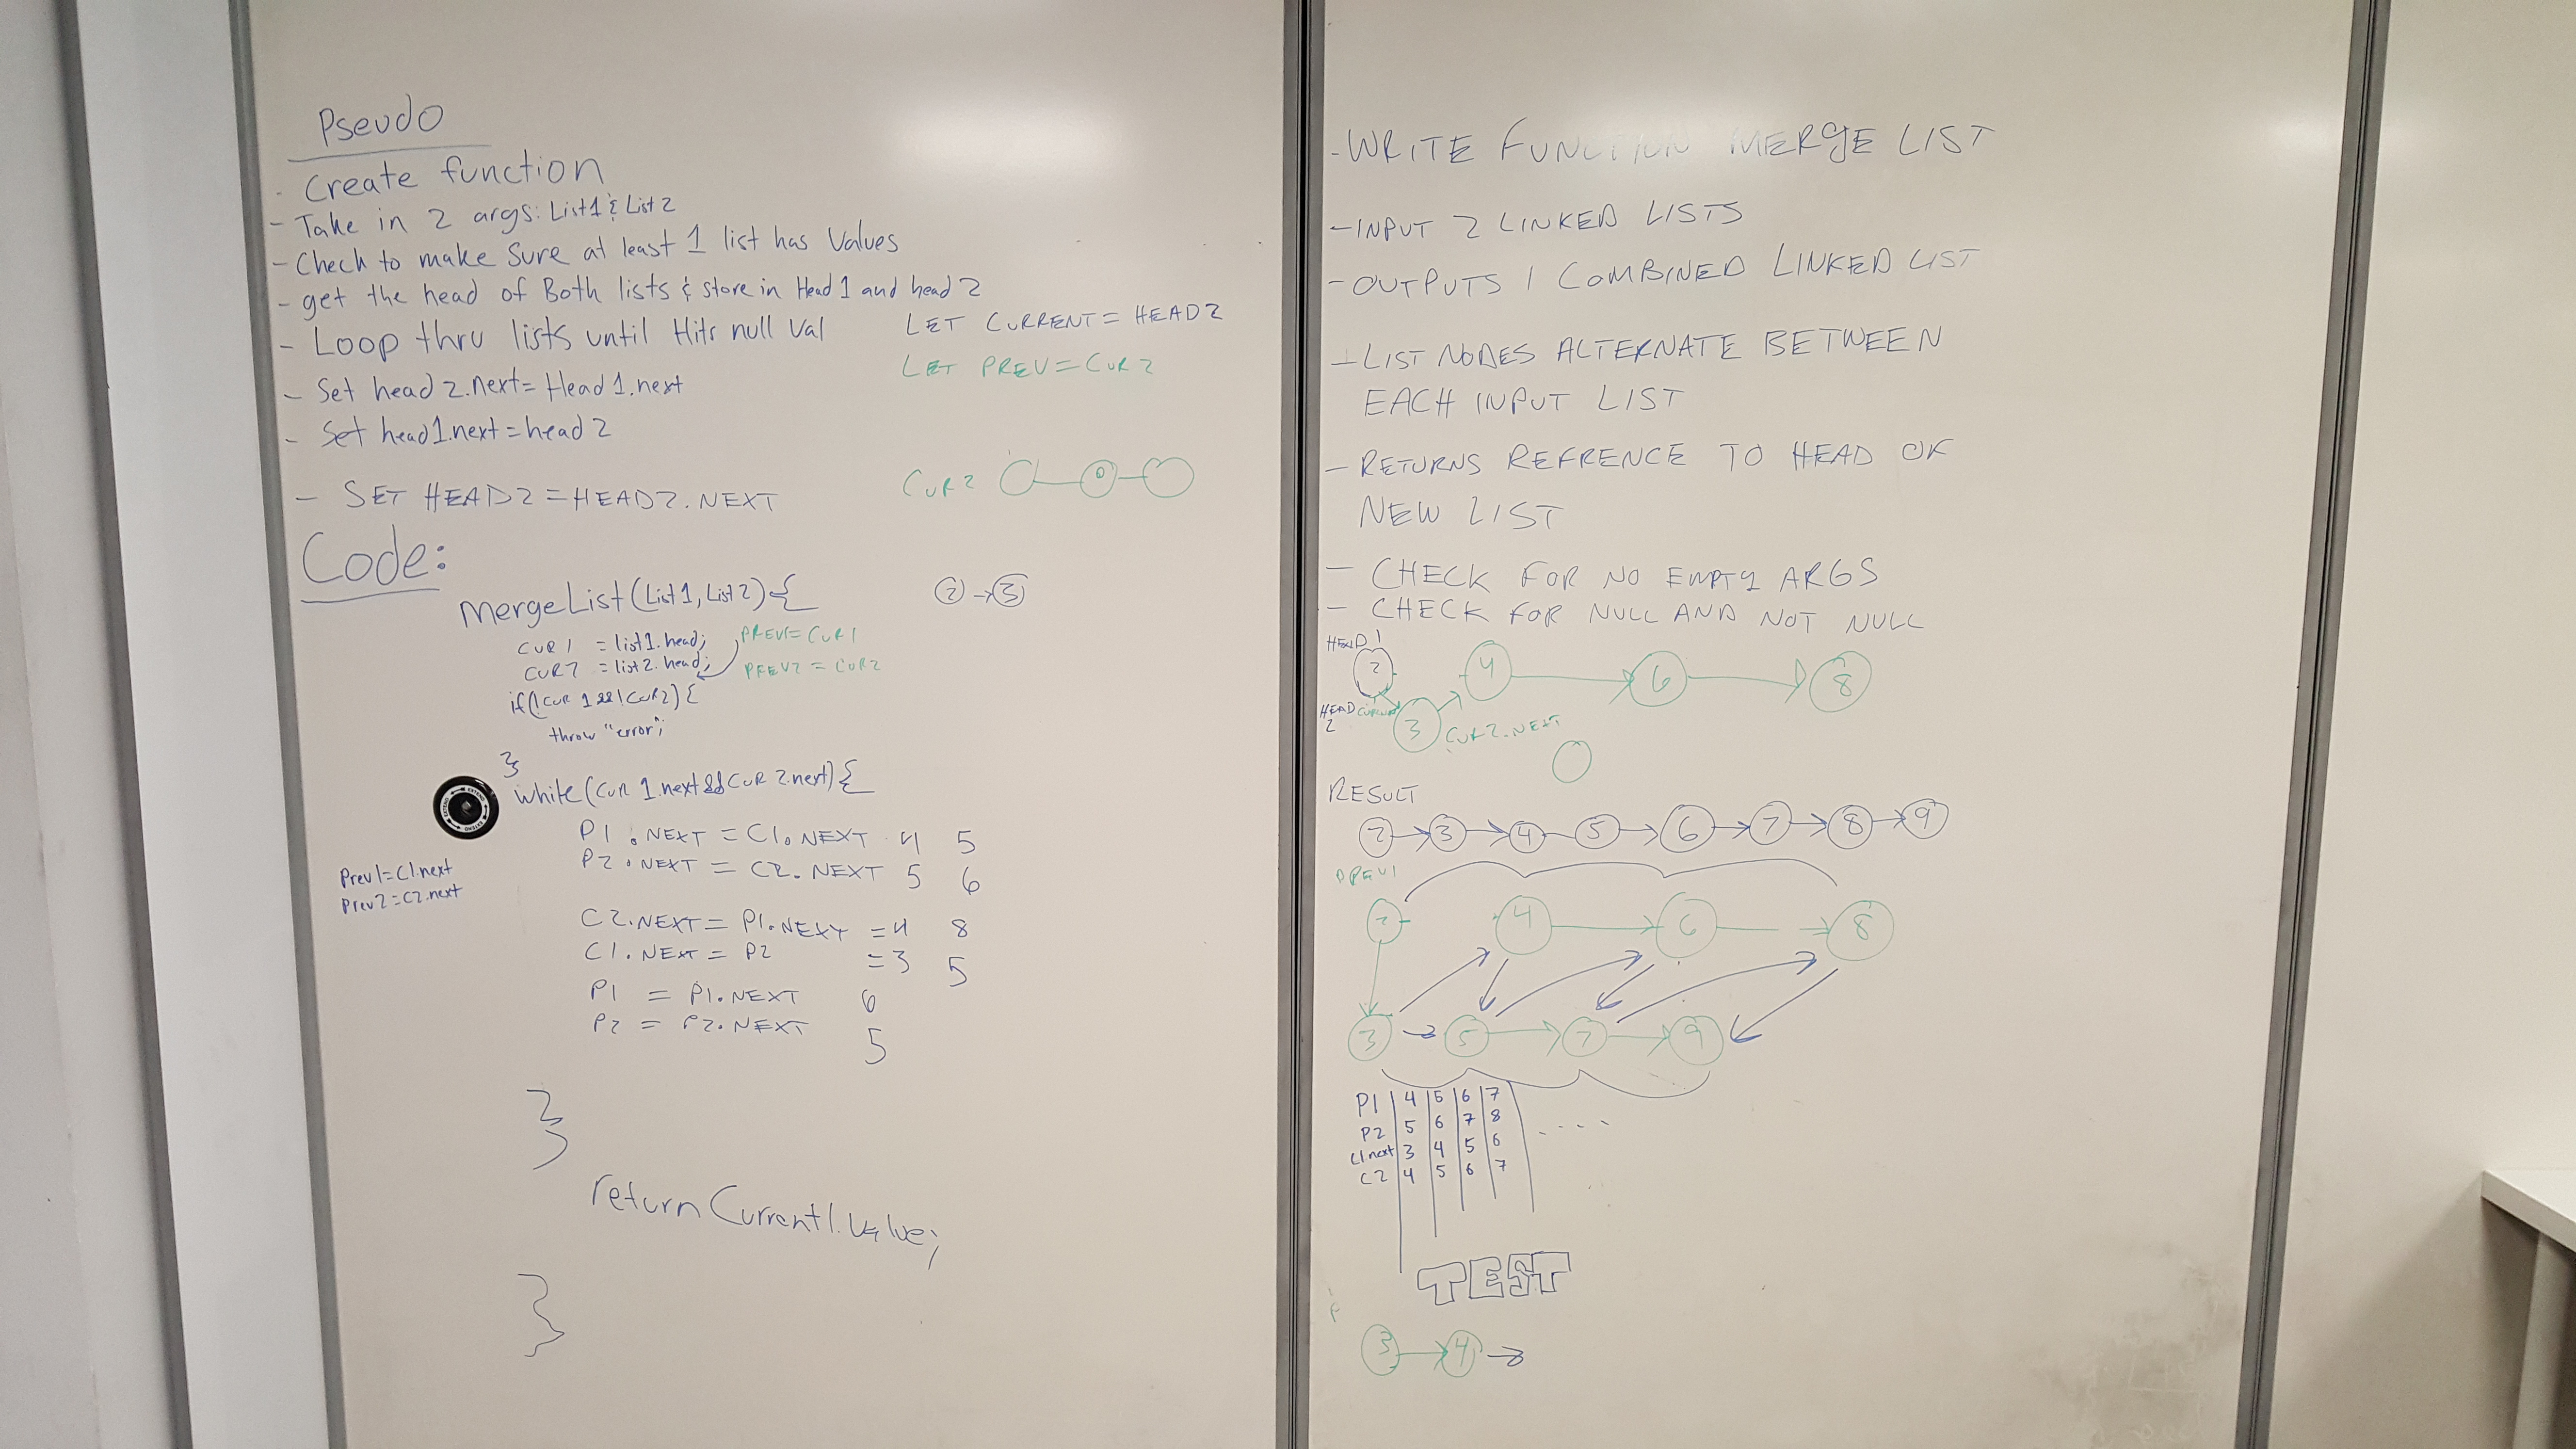 Pseudo
- Create function
- Take in 2 args: List1 & List2
- Check to make Sure at least 1 list has Values
- get the head of Both lists & store in Head 1 and head 2
- Loop thru lists until Hits null Val
- Set head 2.next = Head 1.next
- Set head1.next = head 2
- SET HEAD2 = HEAD2.NEXT
LET CURRENT = HEAD2
LET PREV = CUR2
CUR2
Code:
mergeList(List1, List2){
2 → 3
CUR1 = list1.head;
PREV1 = CUR1
CUR2 = list2.head;
PREV2 = CUR2
if(!CUR 1 && !CUR2){
throw "error";
}
EXTEND EXTEND EXTEND
while(CUR 1.next && CUR 2.next){
P1.NEXT = C1.NEXT 4 5
P2.NEXT = C2.NEXT 5 6
Prev1=C1.next
Prev2=C2.next
C2.NEXT = P1.NEXT = 4 8
C1.NEXT = P2 = 3 5
P1 = P1.NEXT 6
P2 = P2.NEXT 5
}
return Current1.Value;
}
- WRITE FUNCTION MERGE LIST
- INPUT 2 LINKED LISTS
- OUTPUTS 1 COMBINED LINKED LIST
- LIST NODES ALTERNATE BETWEEN
EACH INPUT LIST
- RETURNS REFRENCE TO HEAD OF
NEW LIST
- CHECK FOR NO EMPTY ARGS
- CHECK FOR NULL AND NOT NULL
HEAD 1
2 4 → 6 → 8
HEAD 2
3 CUR2.NEXT
RESULT
2 → 3 → 4 - 5 → 6 → 7 → 8 → 9
PREV1
2 - 4 → 6 → 8
3 → 5 → 7 → 9
P1 | 4 | 5 | 6 | 7
P2 5 6 7 8 ....
C1next 3 4 5 6
C2 4 5 6 7
TEST
3 → 4 →